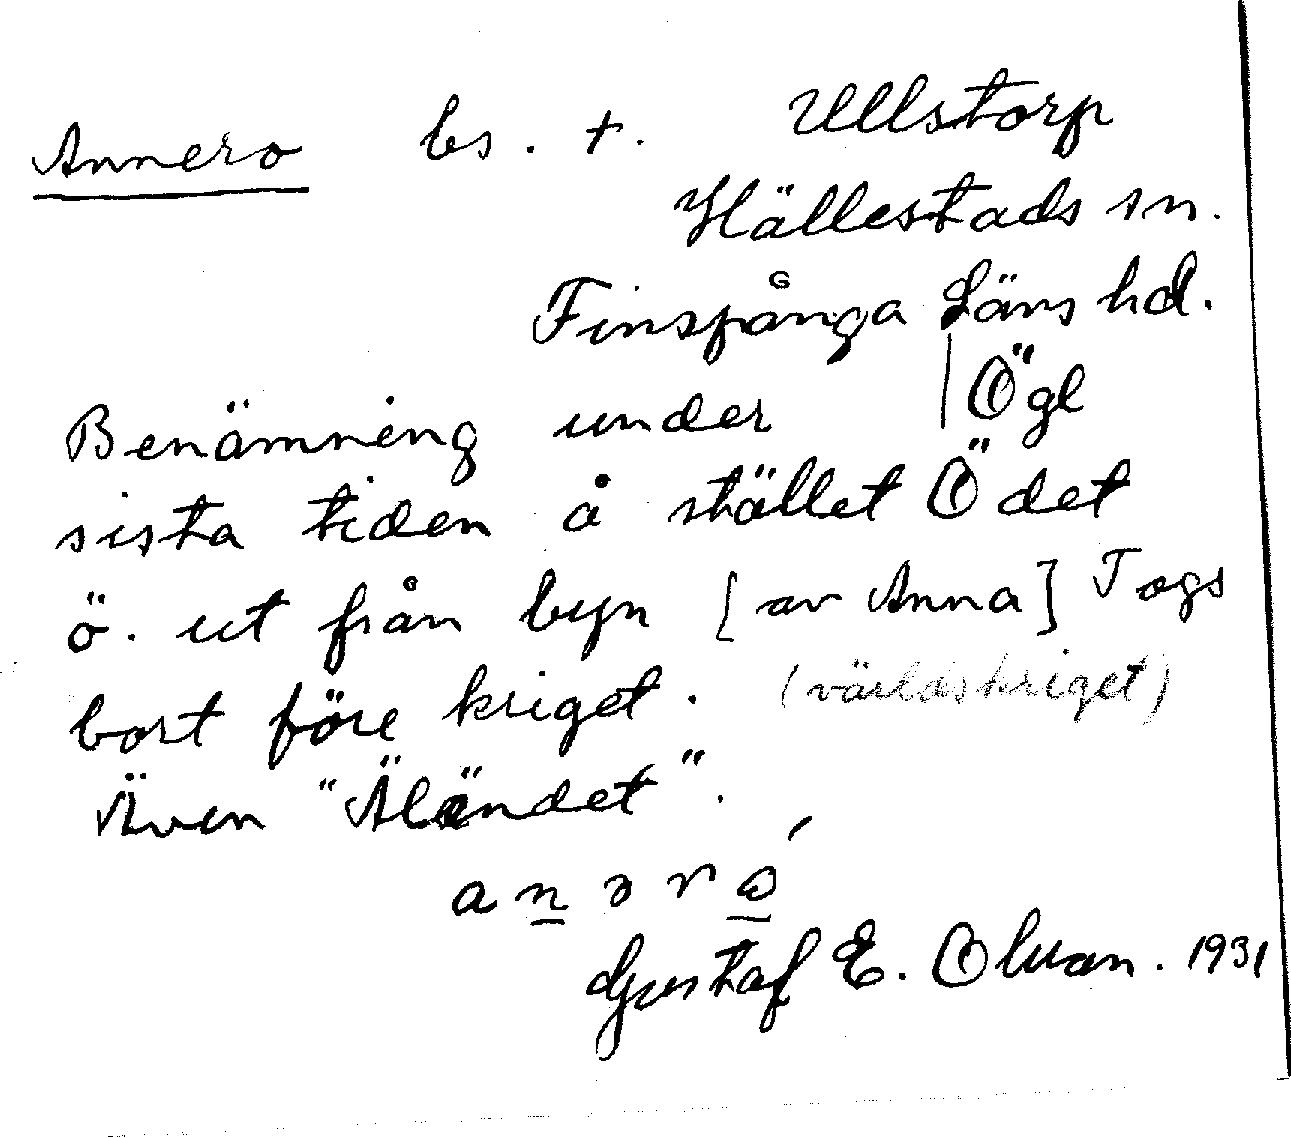 Annero bs. +. Ullstorp
Hällestads sn.
Finspånga Läns hd.
Benämning under | Ögl
sista tiden å stället Ödet
ö. ut från byn [av Anna] Togs
bort före kriget. (världskriget)
Även "Äländet".
anəró
Gustaf E. Olson. 1931